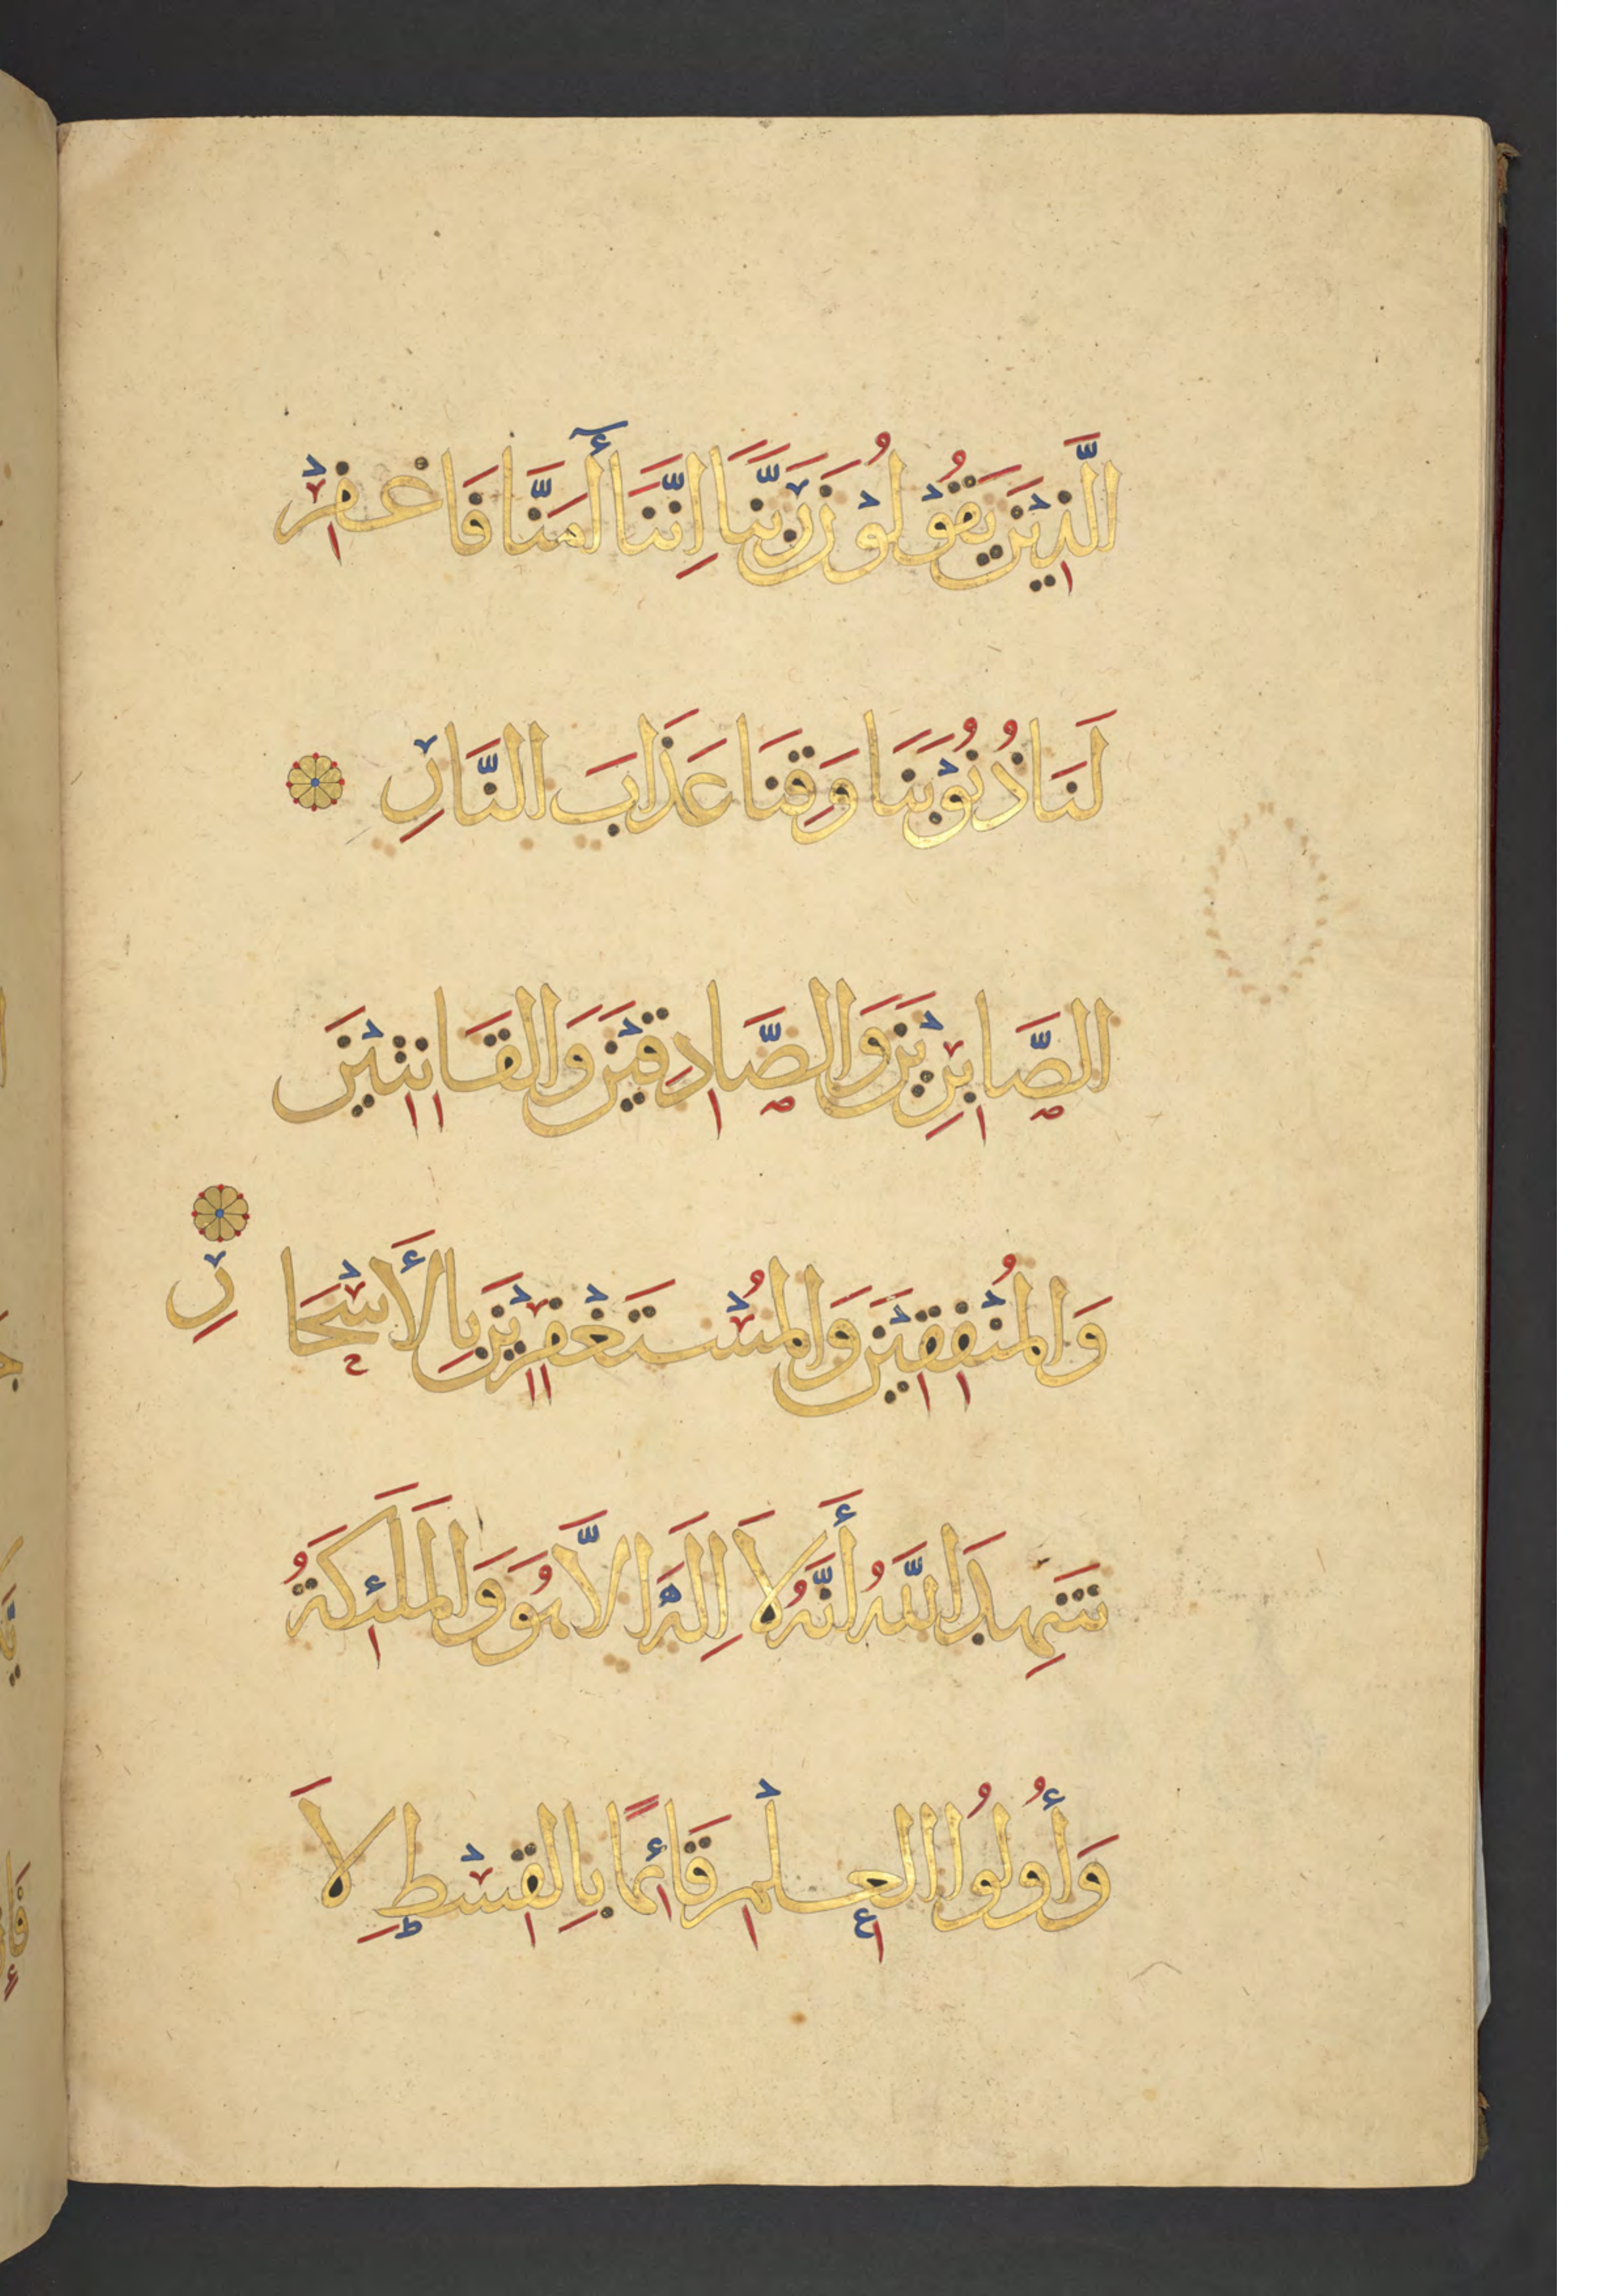 الَّذِيْنَ يَقُوْلُوْنَ رَبَّنَا اِنَّنَا أٰمَنَّا فَاغْفِرْ
لَنَا ذُنُوْبَنَا وَقِنَا عَذَابَ النَّارِ
الصَّابِرِيْنَ وَالصَّادِقِيْنَ وَالْقَانِتِيْنَ
وَالْمُنْفِقِيْنَ وَالْمُسْتَغْفِرِيْنَ بِالْأَسْحَارِ
شَهِدَ اللَّهُ أَنَّهُ لَا اِلَهَ اِلَّا هُوَ وَالْمَلَئِكَةُ
وَأُولُوا الْعِلْمِ قَائِمًا بِالْقِسْطِ لَا